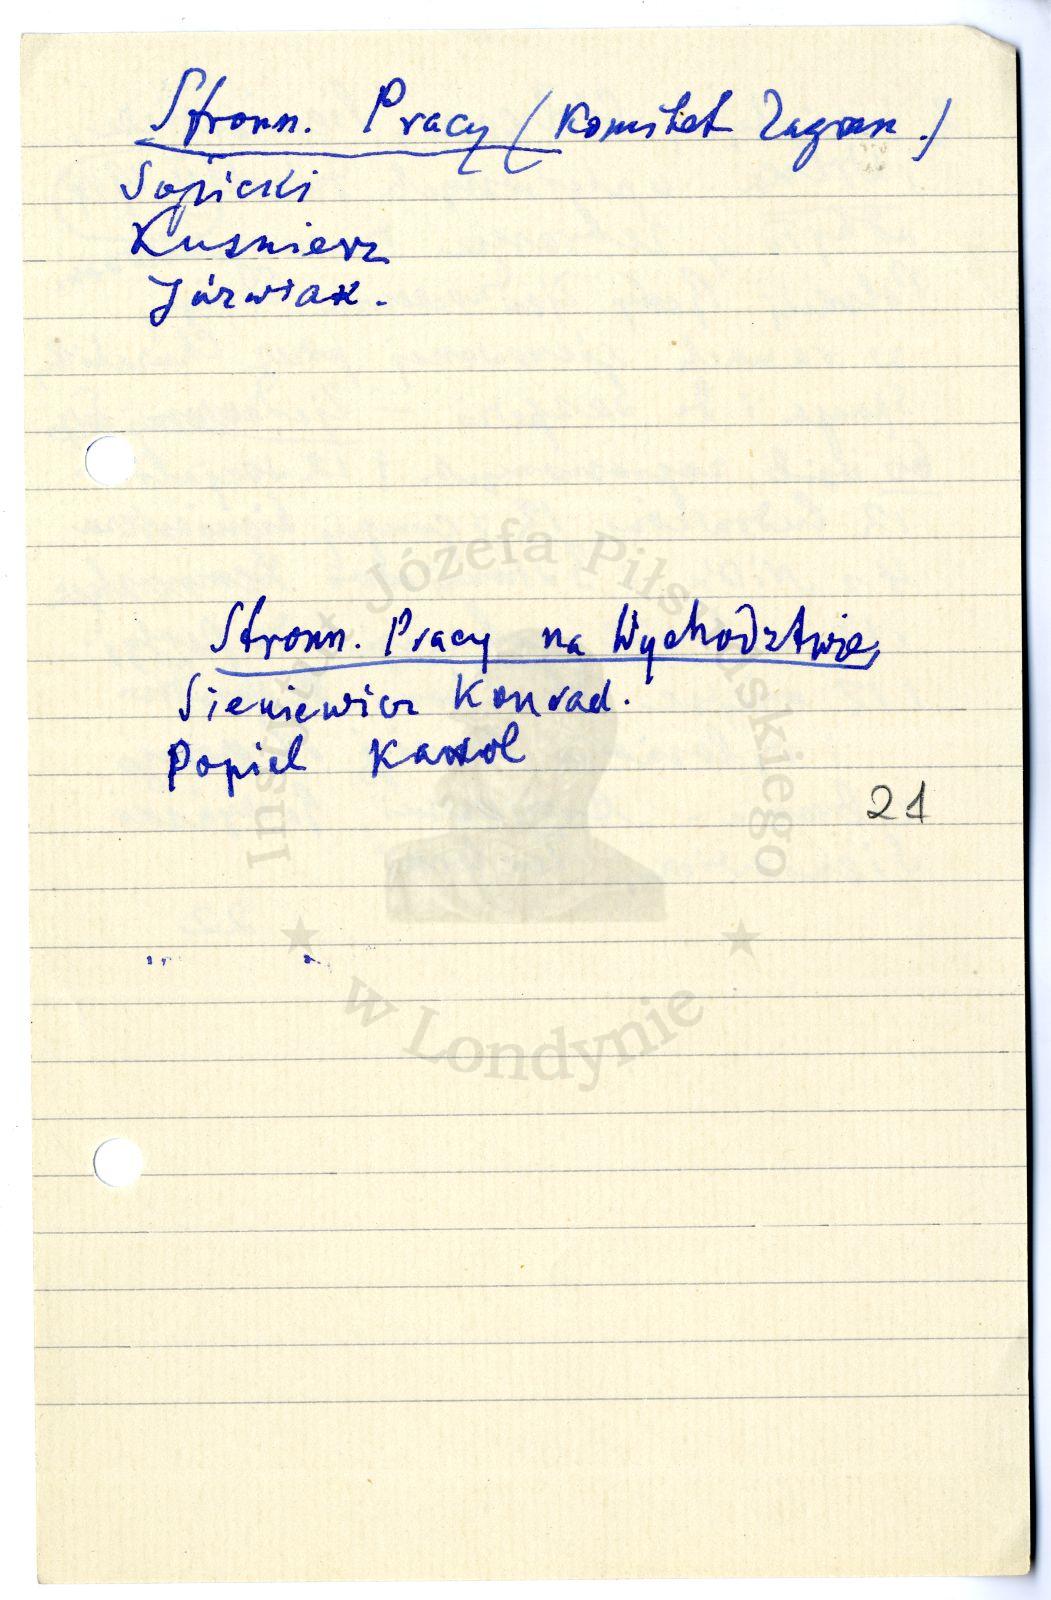 Stronn. Pracy (Komitet Zagran.)
Sopicki
Kuśnierz
Jóźwiak.
Stronn. Pracy na Wychodztwie,
Sieniewicz Konrad.
Popiel Karol
21
Instytut Józefa Piłsudskiego
w Londynie